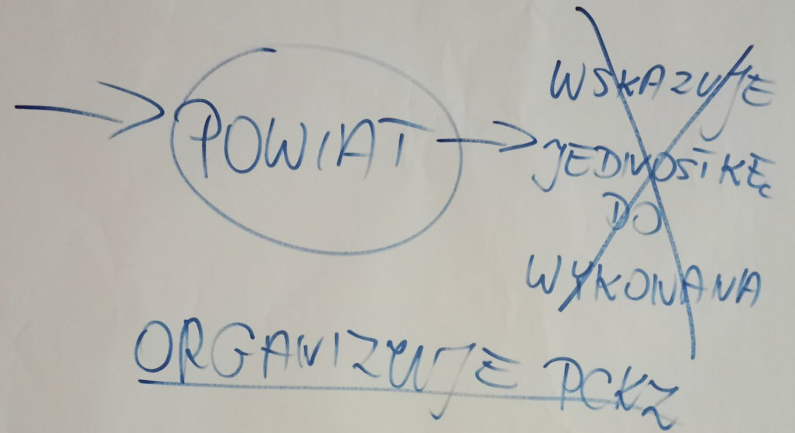 POWIAT
WSKAZUJE
JEDNOSTKĘ
DO
WYKONANA
ORGANIZUJE PCKZ